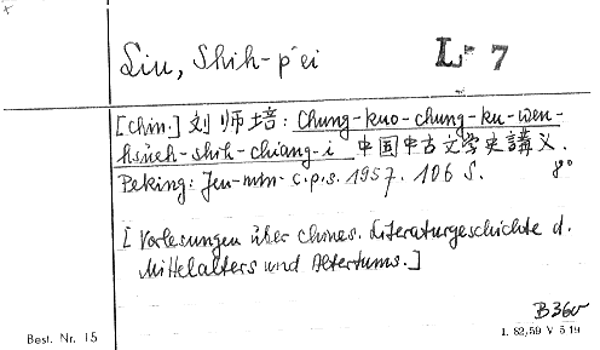 Liu, Shih-p'ei L 7
[Chin.] 刘师培: Chung-kuo-chung-ku-wen-
hsüeh-shih-chiang-i 中国中古文学史講义.
Peking: Jen-min- c.p.s. 1957. 106 S. 8°
[Vorlesungen über chines. Literaturgeschichte d.
Mittelalters und Altertums.]
B360
Best. Nr. 15 1. 82,59 V 5 19